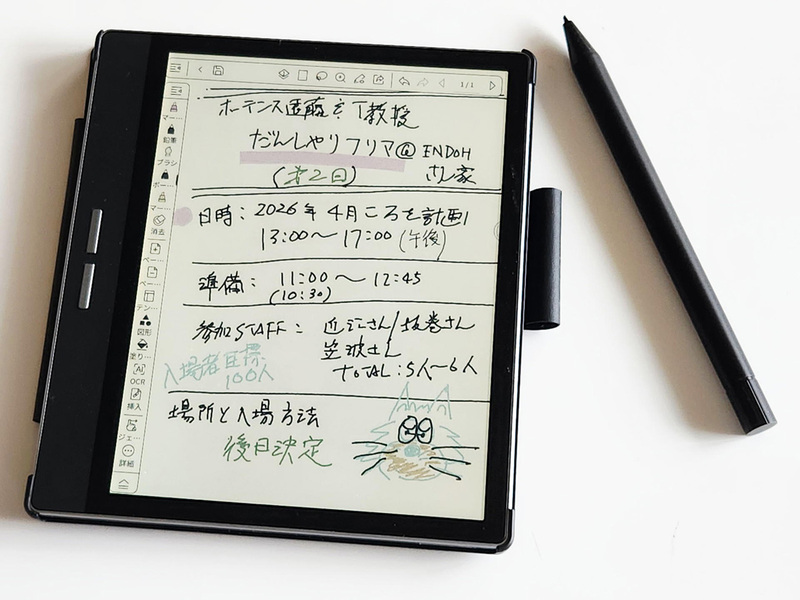 1/1
ホーテンス遠藤とT教授
だんしゃりフリマ@ENDOH
さん家
(才2回)
日時：2026年4月ころを計画
13:00〜17:00（午後）
準備：11:00〜12:45
(10:30)
参加STAFF：近江さん/坂巻さん
笠波さん
TOTAL：5人〜6人
入場者目標
100人
場所と入場方法
後日決定
マー…
鉛筆
ブラシ
ボー…
マー…
消去
ペー…
ペー…
テン…
図形
塗り…
AI
OCR
挿入
ジェ…
詳細